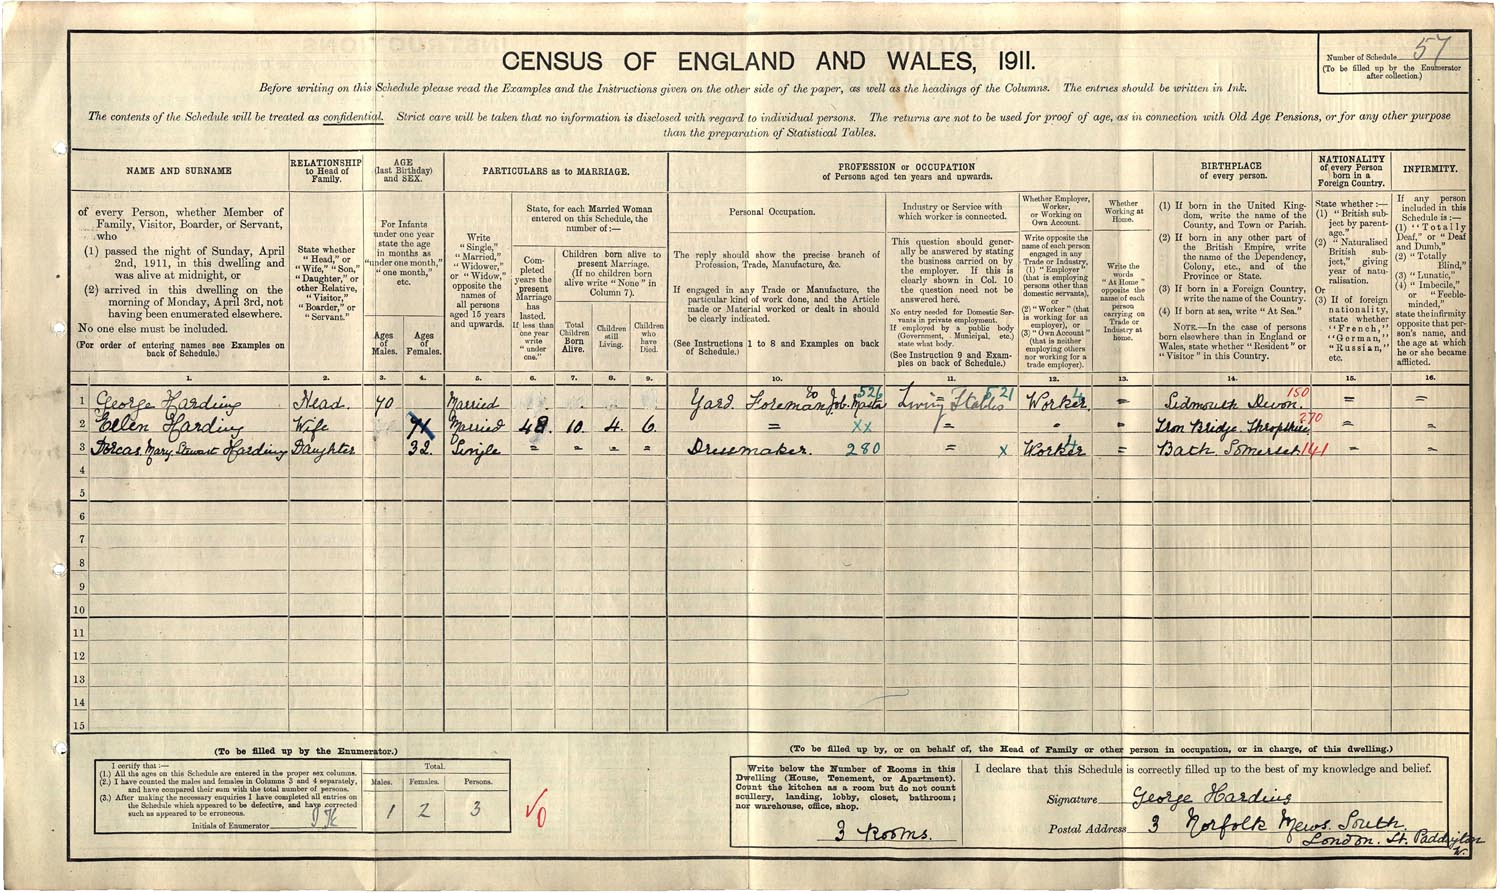 CENSUS OF ENGLAND AND WALES, 1911.
Number of Schedule 57
(To be filled up by the Enumerator
after collection.)
Before writing on this Schedule please read the Examples and the Instructions given on the other side of the paper, as well as the headings of the Columns. The entries should be written in Ink.
The contents of the Schedule will be treated as confidential. Strict care will be taken that no information is disclosed with regard to individual persons. The returns are not to be used for proof of age, as in connection with Old Age Pensions, or for any other purpose
than the preparation of Statistical Tables.
NAME AND SURNAME
of every Person, whether Member of
Family, Visitor, Boarder, or Servant,
who
(1) passed the night of Sunday, April
2nd, 1911, in this dwelling and
was alive at midnight, or
(2) arrived in this dwelling on the
morning of Monday, April 3rd, not
having been enumerated elsewhere.
No one else must be included.
(For order of entering names see Examples on
back of Schedule.)
RELATIONSHIP
to Head of
Family.
State whether
"Head," or
"Wife," "Son,"
"Daughter," or
other Relative,
"Visitor,"
"Boarder," or
"Servant."
AGE
(last Birthday)
and SEX.
For Infants
under one year
state the age
in months as
"under one month,"
"one month,"
etc.
Ages
of
Males.
Ages
of
Females.
PARTICULARS as to MARRIAGE.
Write
"Single,"
"Married,"
"Widower,"
or "Widow,"
opposite the
names of
all persons
aged 15 years
and upwards.
State, for each Married Woman
entered on this Schedule, the
number of:—
Com-
pleted
years the
present
Marriage
has
lasted.
If less than
one year
write
"under
one."
Children born alive to
present Marriage.
(If no children born
alive write "None" in
Column 7).
Total
Children
Born
Alive.
Children
still
Living.
Children
who
have
Died.
PROFESSION or OCCUPATION
of Persons aged ten years and upwards.
Personal Occupation.
The reply should show the precise branch of
Profession, Trade, Manufacture, &c.
If engaged in any Trade or Manufacture, the
particular kind of work done, and the Article
made or Material worked or dealt in should
be clearly indicated.
(See Instructions 1 to 8 and Examples on back
of Schedule.)
Industry or Service with
which worker is connected.
This question should gener-
ally be answered by stating
the business carried on by
the employer. If this is
clearly shown in Col. 10
the question need not be
answered here.
No entry needed for Domestic Ser-
vants in private employment.
If employed by a public body
(Government, Municipal, etc.)
state what body.
(See Instruction 9 and Exam-
ples on back of Schedule.)
Whether Employer,
Worker,
or Working on
Own Account.
Write opposite the
name of each person
engaged in any
Trade or Industry,
(1) "Employer"
(that is employing
persons other than
domestic servants),
or
(2) "Worker" (that
is working for an
employer), or
(3) "Own Account"
(that is neither
employing others
nor working for a
trade employer).
Whether
Working at
Home.
Write the
words
"At Home"
opposite the
name of each
person
carrying on
Trade or
Industry at
home.
BIRTHPLACE
of every person.
(1) If born in the United King-
dom, write the name of the
County, and Town or Parish.
(2) If born in any other part of
the British Empire, write
the name of the Dependency,
Colony, etc., and of the
Province or State.
(3) If born in a Foreign Country,
write the name of the Country.
(4) If born at sea, write "At Sea."
NOTE.—In the case of persons
born elsewhere than in England or
Wales, state whether "Resident" or
"Visitor" in this Country.
NATIONALITY
of every Person
born in a
Foreign Country.
State whether:—
(1) "British sub-
ject by parent-
age."
(2) "Naturalised
British sub-
ject," giving
year of natu-
ralisation.
Or
(3) If of foreign
nationality,
state whether
"French,"
"German,"
"Russian,"
etc.
INFIRMITY.
If any person
included in this
Schedule is:—
(1) "Totally
Deaf," or "Deaf
and Dumb,"
(2) "Totally
Blind,"
(3) "Lunatic,"
(4) "Imbecile,"
or "Feeble-
minded,"
state the infirmity
opposite that per-
son's name, and
the age at which
he or she became
afflicted.
1. 2. 3. 4. 5. 6. 7. 8. 9. 10. 11. 12. 13. 14. 15. 16.
1 George Harding Head. 70 Married Yard Foreman to Job. Master 526 Living Stables 521 Worker 4 = Sidmouth Devon. 150 = =
2 Ellen Harding Wife 71 Married 48. 10. 4. 6. = XX " = Iron Bridge. Shropshire 270 = =
3 Dorcas. Mary. Stewart Harding Daughter 32. Single = = = = Dressmaker. 280 = x Worker = Bath Somerset. 141 = =
4
5
6
7
8
9
10
11
12
13
14
15
(To be filled up by the Enumerator.)
I certify that:—
(1.) All the ages on this Schedule are entered in the proper sex columns.
(2.) I have counted the males and females in Columns 3 and 4 separately,
and have compared their sum with the total number of persons.
(3.) After making the necessary enquiries I have completed all entries on
the Schedule which appeared to be defective, and have corrected
such as appeared to be erroneous.
Initials of Enumerator
Total.
Males. Females. Persons.
1 2 3
(To be filled up by, or on behalf of, the Head of Family or other person in occupation, or in charge, of this dwelling.)
Write below the Number of Rooms in this
Dwelling (House, Tenement, or Apartment).
Count the kitchen as a room but do not count
scullery, landing, lobby, closet, bathroom;
nor warehouse, office, shop.
3 Rooms.
I declare that this Schedule is correctly filled up to the best of my knowledge and belief.
Signature George Harding
Postal Address 3 Norfolk Mews. South.
London. St. Paddington
W.